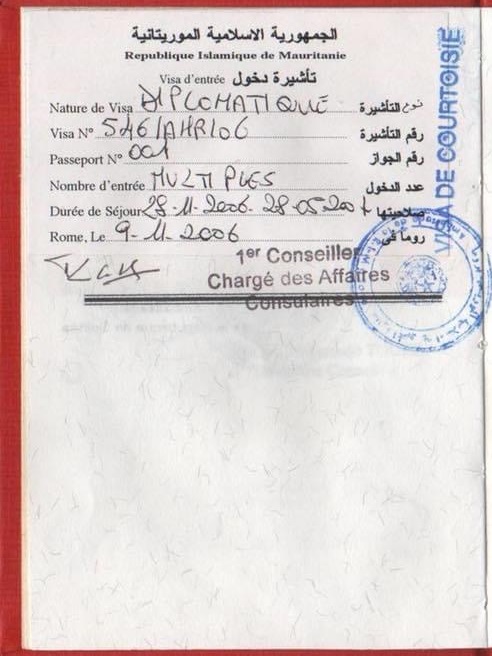 الجمهورية الاسلامية الموريتانية
Republique Islamique de Mauritanie
Visa d'entrée تأشيرة دخول
Nature de Visa DIPLOMATIQUE نوع التأشيرة
Visa N° 546/AHR/06 رقم التأشيرة
Passeport N° 001 رقم الجواز
Nombre d'entrée MULTIPLES عدد الدخول
Durée de Séjour 28-11-2006-28-05-2007 صلاحيتها
Rome, Le 9-11-2006 روما في
1er Conseiller
Chargé des Affaires
Consulaires
VISA DE COURTOISIE